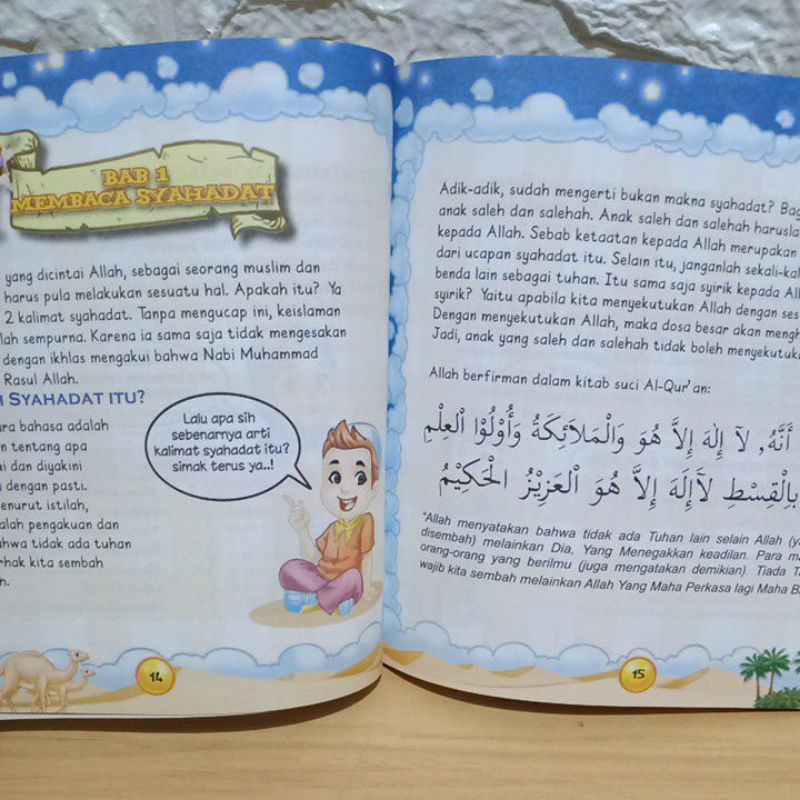 BAB 1
MEMBACA SYAHADAT
yang dicintai Allah, sebagai seorang muslim dan
harus pula melakukan sesuatu hal. Apakah itu? Ya
2 kalimat syahadat. Tanpa mengucap ini, keislaman
lah sempurna. Karena ia sama saja tidak mengesakan
dengan ikhlas mengakui bahwa Nabi Muhammad
Rasul Allah.
SYAHADAT ITU?
ra bahasa adalah
n tentang apa
i dan diyakini
dengan pasti.
enurut istilah,
alah pengakuan dan
hwa tidak ada tuhan
rhak kita sembah
h.
Lalu apa sih
sebenarnya arti
kalimat syahadat itu?
simak terus ya..!
14
Adik-adik, sudah mengerti bukan makna syahadat? Bag
anak saleh dan salehah. Anak saleh dan salehah harusla
kepada Allah. Sebab ketaatan kepada Allah merupakan
dari ucapan syahadat itu. Selain itu, janganlah sekali-kal
benda lain sebagai tuhan. Itu sama saja syirik kepada All
syirik? Yaitu apabila kita menyekutukan Allah dengan ses
Dengan menyekutukan Allah, maka dosa besar akan mengh
Jadi, anak yang saleh dan salehah tidak boleh menyekutuka
Allah berfirman dalam kitab suci Al-Qur'an:
أَنَّهُ, لَآ إِلَهَ إِلاَّ هُوَ وَالْمَلاَئِكَةُ وَأُوْلُوْا الْعِلْمِ
بِالْقِسْطِ لَآإِلَهَ إِلاَّ هُوَ الْعَزِيْزُ الْحَكِيْمُ
"Allah menyatakan bahwa tidak ada Tuhan lain selain Allah (ya
disembah) melainkan Dia, Yang Menegakkan keadilan. Para ma
orang-orang yang berilmu (juga mengatakan demikian). Tiada T
wajib kita sembah melainkan Allah Yang Maha Perkasa lagi Maha B
15